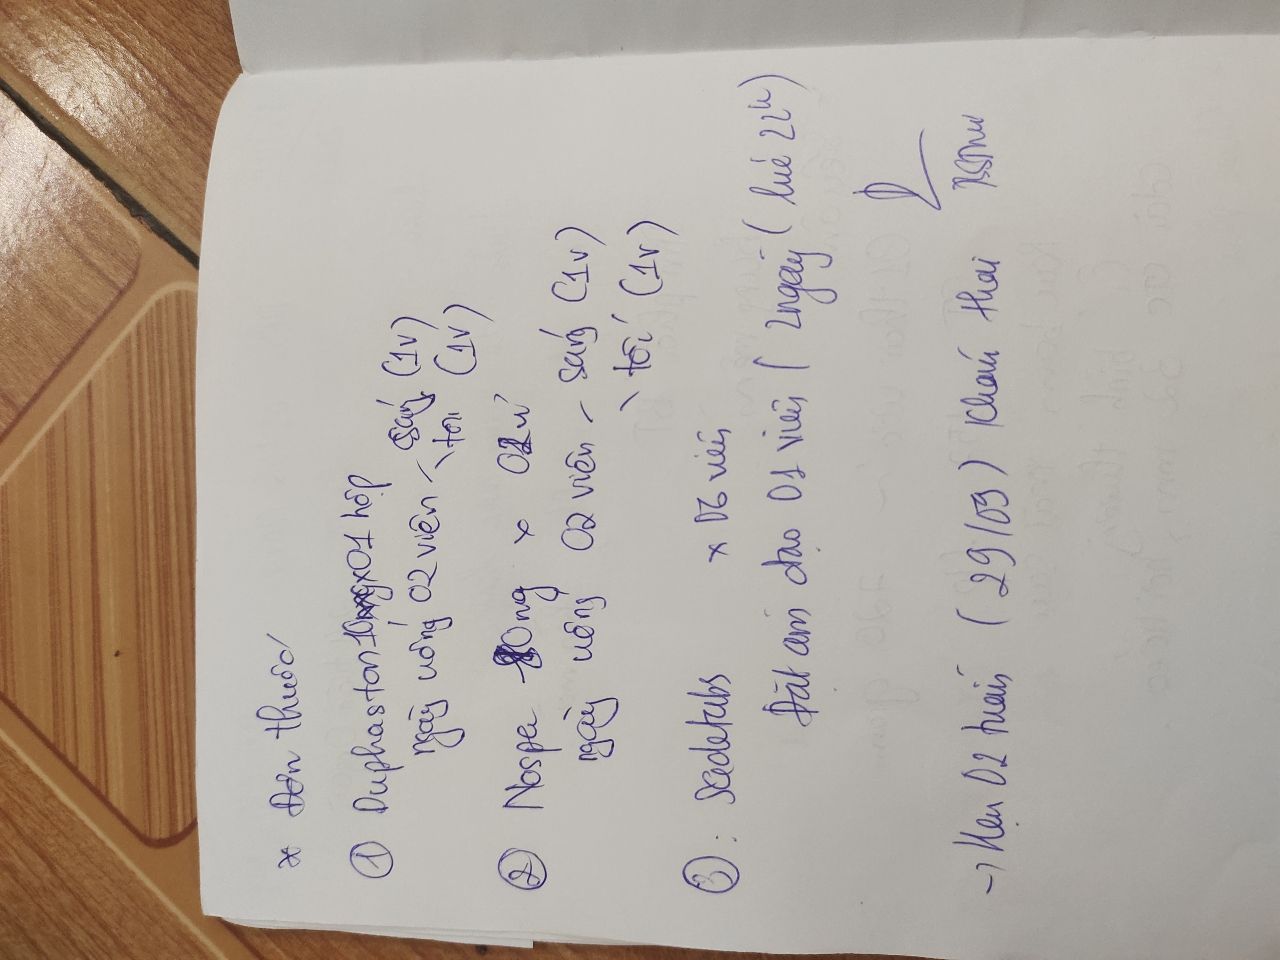 * Đơn thuốc
① Duphaston 10mg x 01 hộp
ngày uống 02 viên - sáng (1v)
\ tối (1v)
② Nospa 80mg x 02 vỉ
ngày uống 02 viên - sáng (1v)
\ tối (1v)
③ : Sadetabs x 06 viên
Đặt âm đạo 01 viên / 2 ngày (lúc 22h)
→ Hẹn 02 tuần (29/09) khám thai